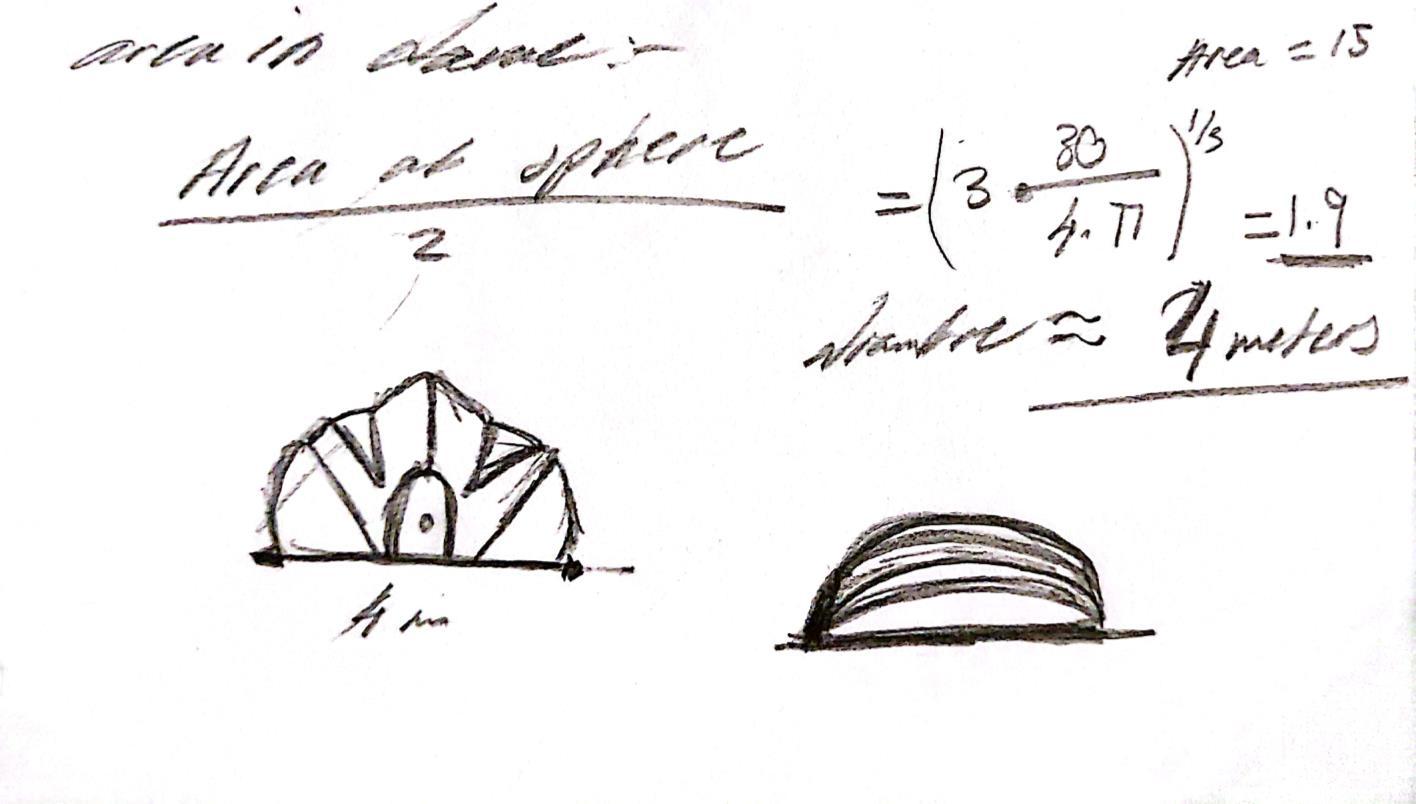 area in dome:-
Area of sphere
2
Area = 15
= (3 · 30 / 4·π)^1/3 = 1.9
≈ 4 meters
4 m